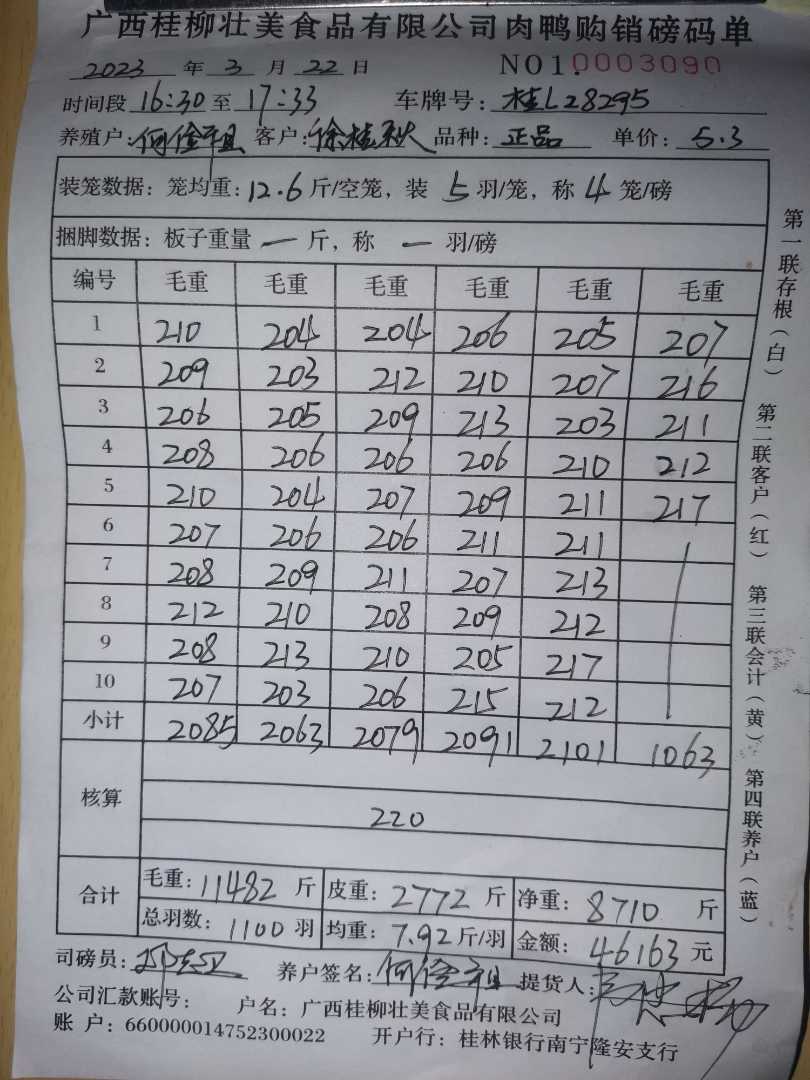 广西桂柳壮美食品有限公司肉鸭购销磅码单
2023 年 3 月 22 日 NO1. 0003090
时间段 16:30 至 17:33 车牌号: 桂L28295
养殖户: 何俊祖 客户: 徐桂秋 品种: 正品 单价: 5.3
装笼数据: 笼均重: 12.6 斤/空笼, 装 5 羽/笼, 称 4 笼/磅
捆脚数据: 板子重量 一 斤, 称 一 羽/磅
编号 毛重 毛重 毛重 毛重 毛重 毛重
1 210 204 204 206 205 207
2 209 203 212 210 207 216
3 206 205 209 213 203 211
4 208 206 206 206 210 212
5 210 204 207 209 211 217
6 207 206 206 211 211
7 208 209 211 207 213
8 212 210 208 209 212
9 208 213 210 205 217
10 207 203 206 215 212
小计 2085 2063 2079 2091 2101 1063
核算 220
合计 毛重: 11482 斤 皮重: 2772 斤 净重: 8710 斤
总羽数: 1100 羽 均重: 7.92 斤/羽 金额: 46163 元
司磅员: 养户签名: 何俊祖 提货人:
公司汇款账号: 户名: 广西桂柳壮美食品有限公司
账 户: 660000014752300022 开户行: 桂林银行南宁隆安支行
第一联存根(白) 第二联客户(红) 第三联会计(黄) 第四联养户(蓝)